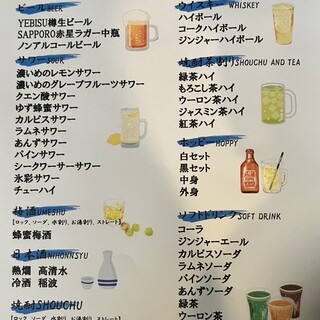 ビール BEER
YEBISU樽生ビール
SAPPORO赤星ラガー中瓶
ノンアルコールビール
サワー SOUR
濃いめのレモンサワー
濃いめのグレープフルーツサワー
クエン酸サワー
ゆず蜂蜜サワー
カルピスサワー
ラムネサワー
あんずサワー
パインサワー
シークワーサーサワー
氷彩サワー
チューハイ
梅酒 UMESHU
[ロック、ソーダ、水割り、お湯割り、ストレート]
蜂蜜梅酒
日本酒 NIHONNSYU
熱燗 高清水
冷酒 稲波
焼酎 SHOUCHU
[ロック、ソーダ、水割り、お湯割り、ストレート]
ウイスキー WHISKEY
ハイボール
コークハイボール
ジンジャーハイボール
焼酎茶割り SHOUCHU AND TEA
緑茶ハイ
もろこし茶ハイ
ウーロン茶ハイ
ジャスミン茶ハイ
紅茶ハイ
ホッピー HOPPY
白セット
黒セット
中身
外身
ソフトドリンク SOFT DRINK
コーラ
ジンジャーエール
カルピスソーダ
ラムネソーダ
パインソーダ
あんずソーダ
緑茶
ウーロン茶